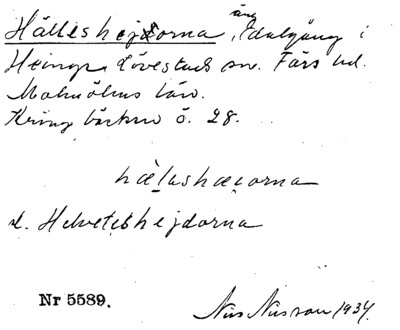 Hälleshejdorna, äng, Edalgäng i
Heinge, Lövestads sn. Färs hd.
Malmöhus län.
Kring bäcken ö. 28.
hælashæɩorna
el. Helveteshejdorna
Nr 5589.
Nils Nilsson 1934.